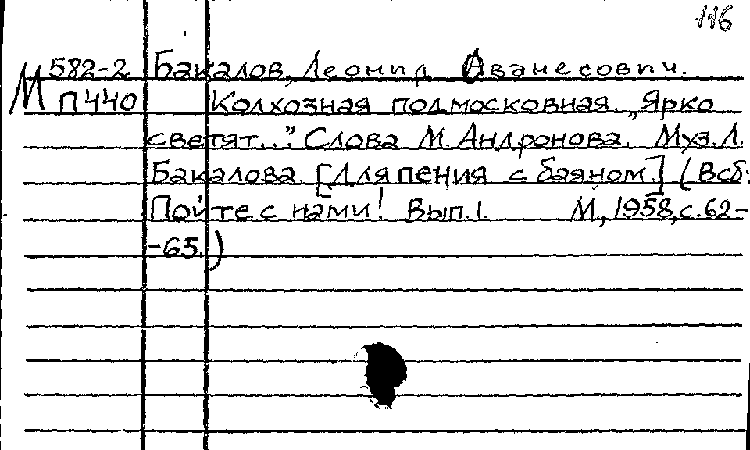 116
М 582-2 Бакалов, Леонид Ованесович.
П440 Колхозная подмосковная. „Ярко
светят..." Слова М. Андронова. Муз. Л.
Бакалова. [Для пения с баяном.] (В сб.:
Пойте с нами! Вып.1. М, 1958, с. 62-
-65.)